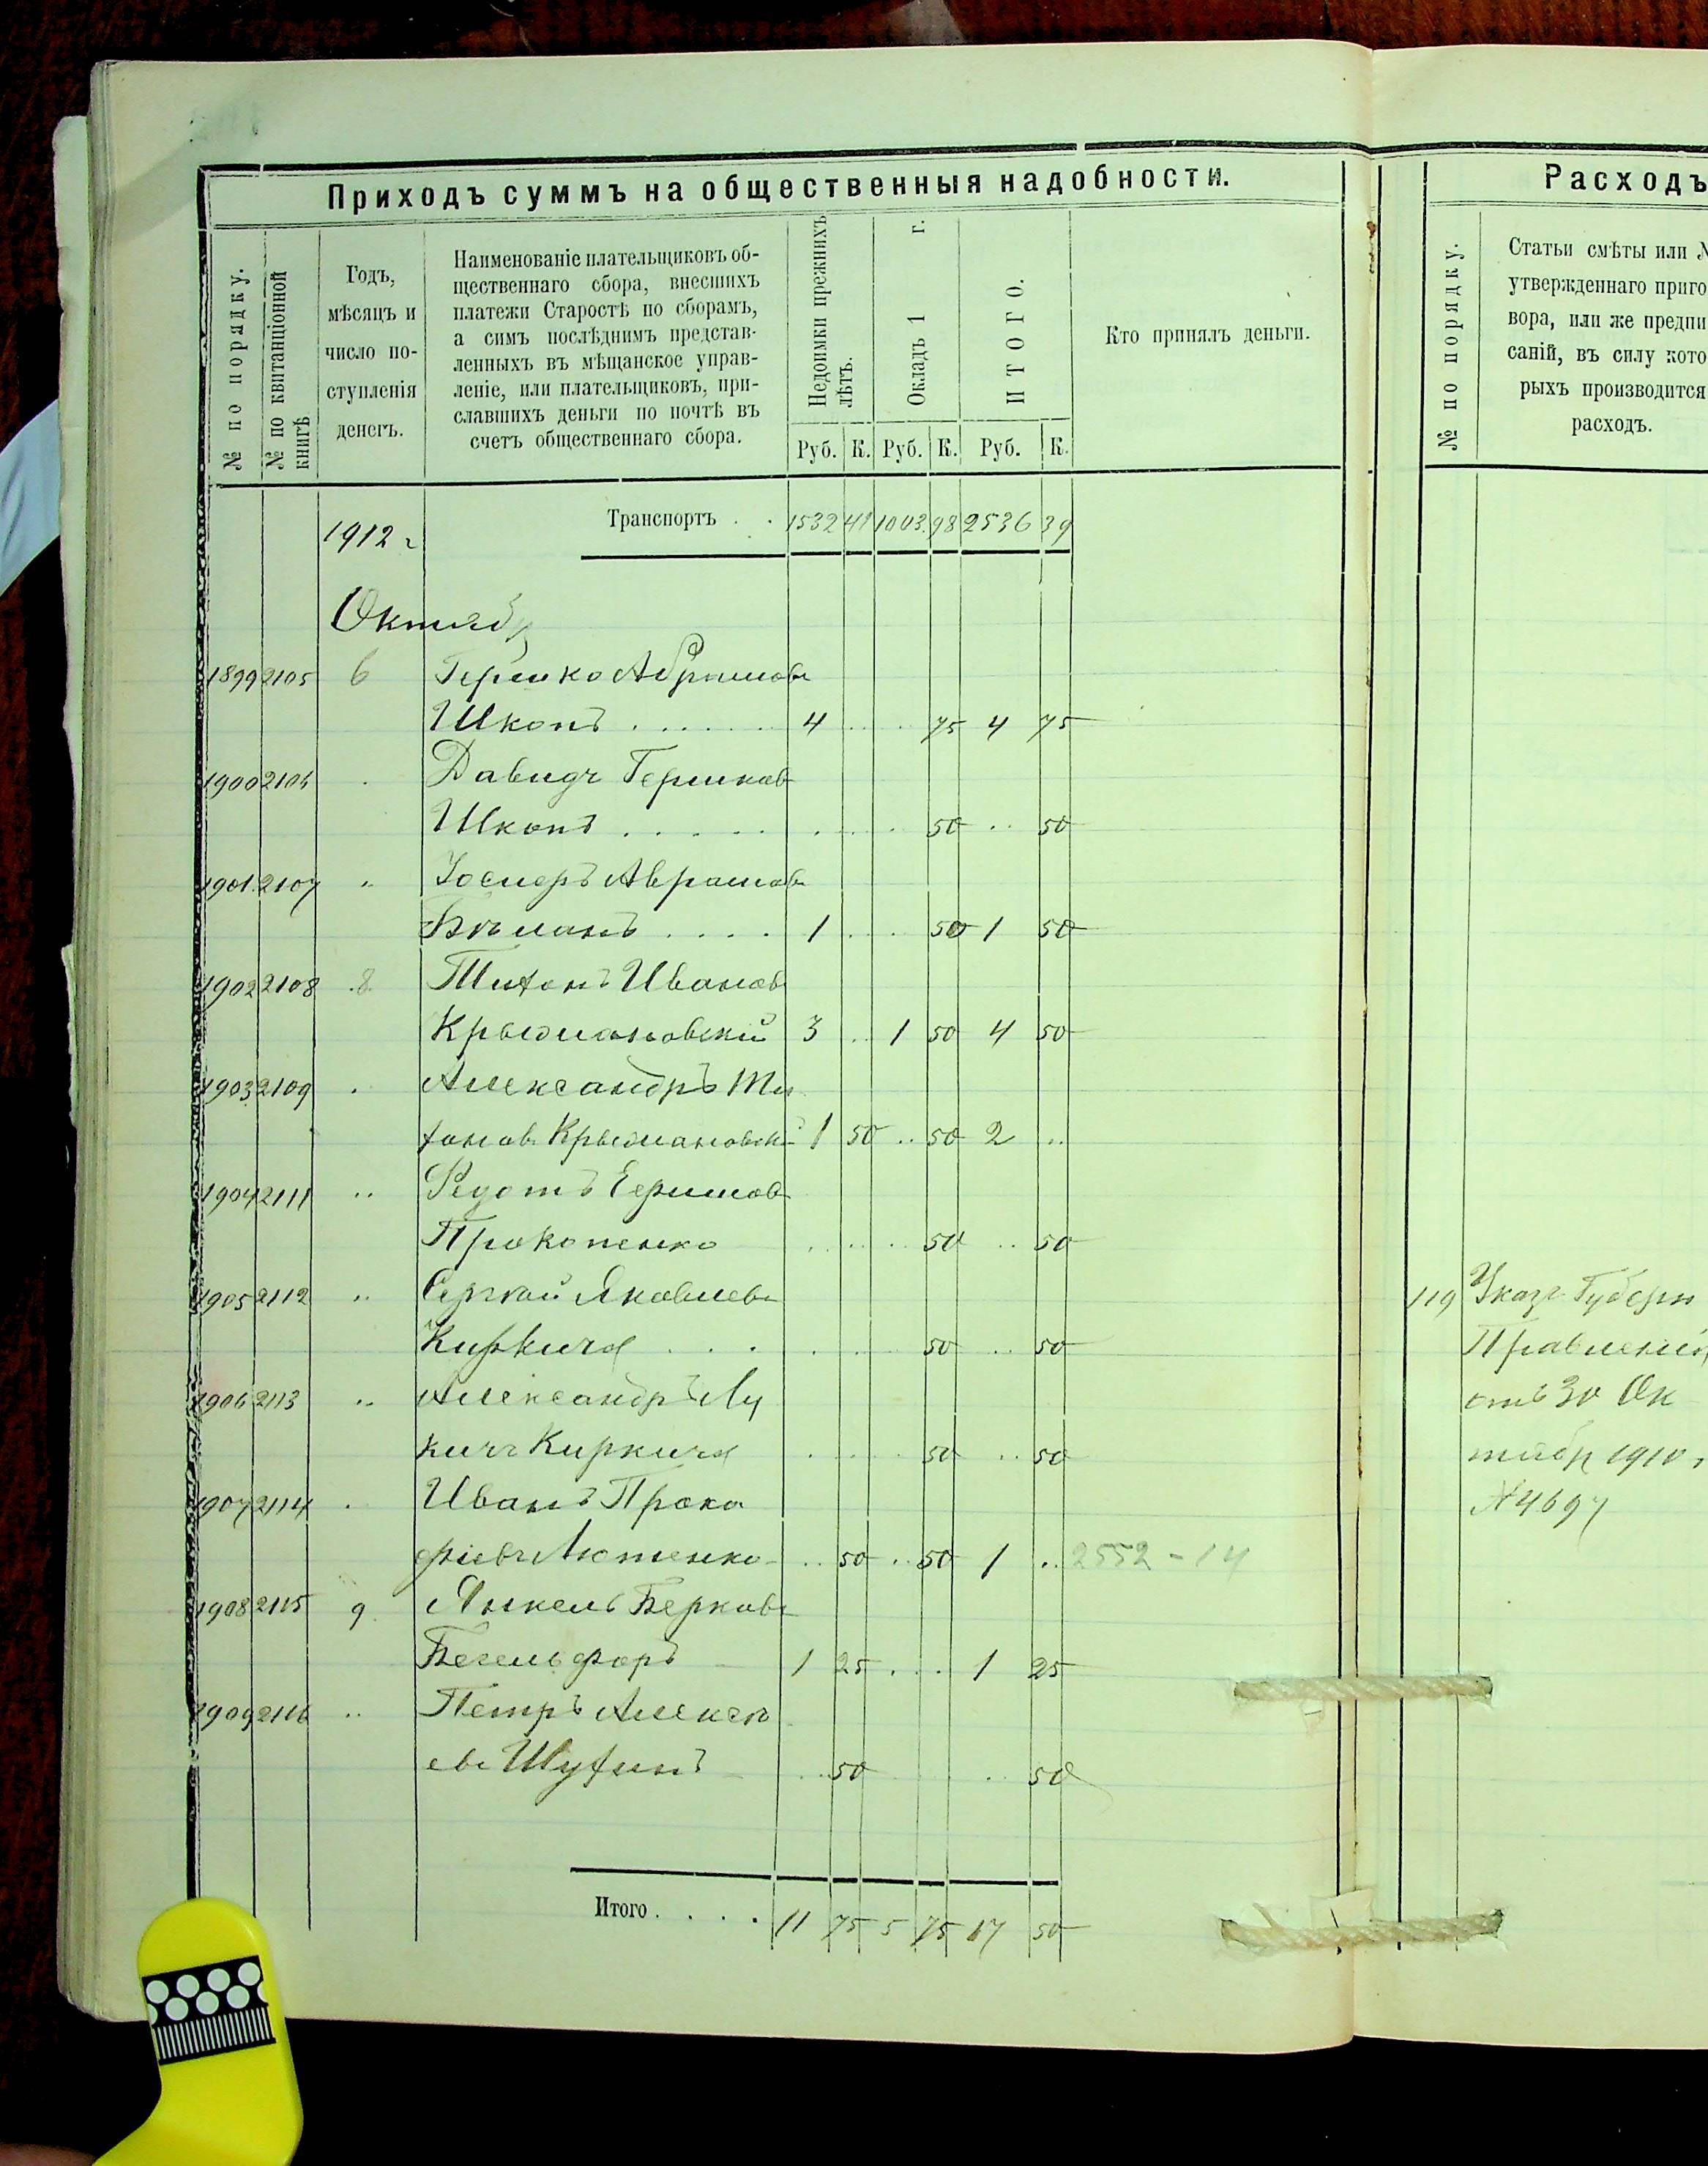 Приходъ суммъ на общественныя надобности.
№ по порядку.
№ по квитанціонной книгѣ
Годъ,
мѣсяцъ и
число по-
ступленія
денегъ.
Наименованіе плательщиковъ об-
щественнаго сбора, внесшихъ
платежи Старостѣ по сборамъ,
а симъ послѣднимъ представ-
ленныхъ въ мѣщанское управ-
леніе, или плательщиковъ, при-
славшихъ деньги по почтѣ въ
счетъ общественнаго сбора.
Недоимки прежнихъ лѣтъ.
Окладъ 1 г.
ИТОГО.
Кто принялъ деньги.
Руб. К. Руб. К. Руб. К.
1912 г Транспортъ . . 1532 41 1003 98 2536 39
Октяб
1899 2105 6 Гершко Абрамов
Шкопъ . . . . . . 4 . . . . 75 4 75
1900 2106 . Давидъ Гершков
Шкопъ . . . . . . . . . 50 . . 50
1901 2107 " Іосифъ Аврамов
1 . . . 50 1 50
1902 2108 8 Тихонъ Иванов
Крыжановскій 3 . . 1 50 4 50
1903 2109 . Александръ Ти
хонов Крыжановскі 1 50 . . 50 2 ..
1904 2111 .. Федотъ Ефимов
Прокопенко . . . . . 50 . . 50
1905 2112 .. Сергѣй Яковлевъ
Киркичъ . . . . . . 50 . . 50
1906 2113 .. Александръ Лу
кичъ Киркичъ . . . . 50 . . 50
1907 2114 . Иванъ Проко
фіевъ Лютенко . . 50 . . 50 1 .. 2552 - 14
1908 2115 9 Янкель Берковъ
Бегельфоръ 1 25 . . . 1 25
1909 2116 .. Петръ Алексѣ
евъ Шухинъ . . 50 . . 50
Итого . . . . 11 75 5 75 17 50
Расходъ
№ по порядку.
Статьи смѣты или №
утвержденнаго приго
вора, или же предпи
саній, въ силу кото
рыхъ производится
расходъ.
119 Указъ Губерн
Правленія
отъ 30 Ок
тябр 1910 г
№ 4697